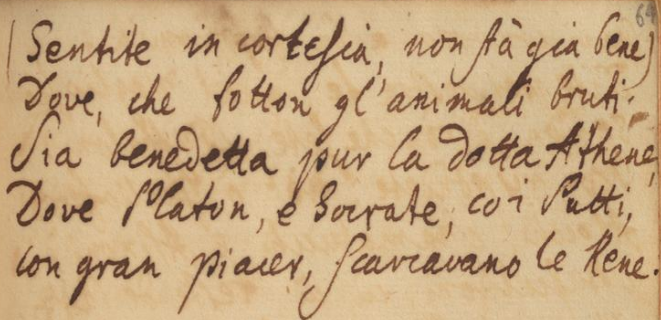 64
(Sentite in cortesia, non stà gia bene)
Dove, che fotton gl'animali bruti.
Sia benedetta pur la dotta Athene,
Dove Platon, e Socrate, coi Putti,
con gran piacer, scarcavano le Rene.